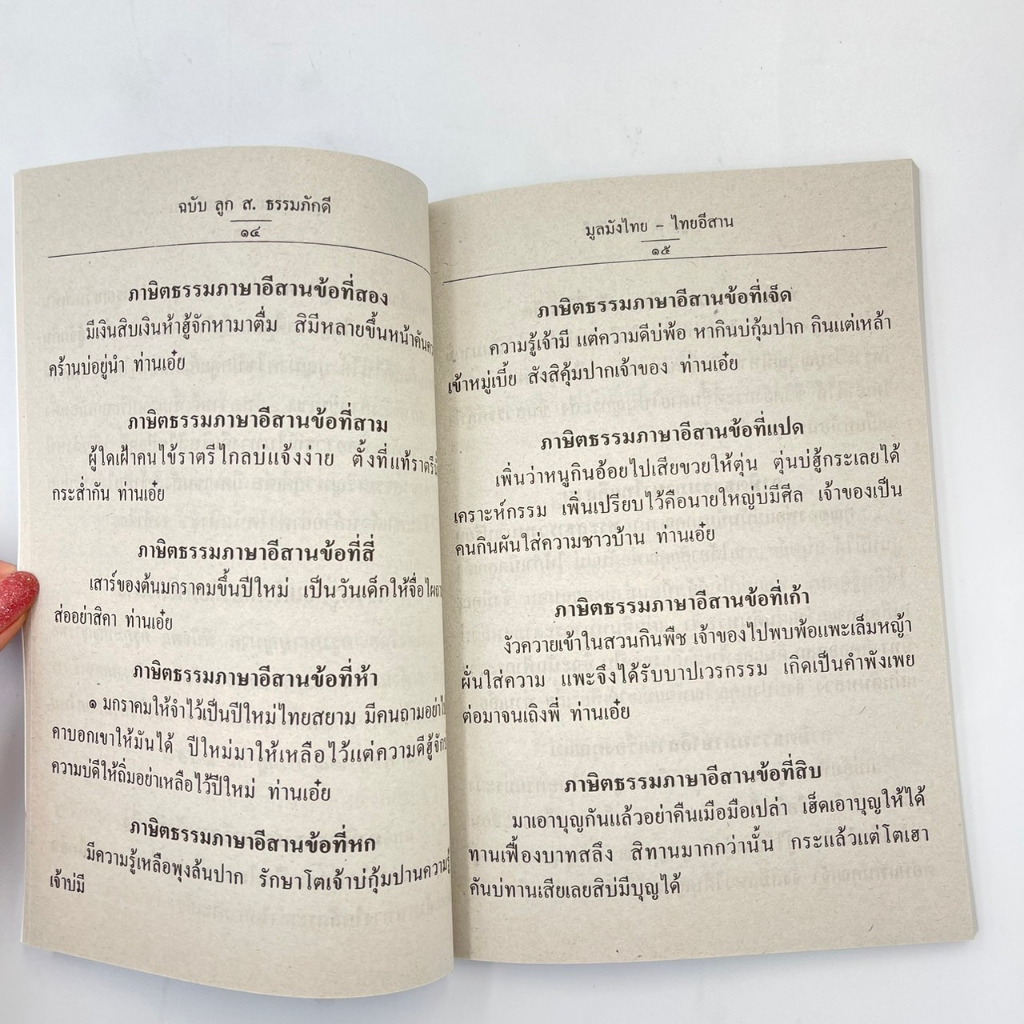 ฉบับ ลูก ส. ธรรมภักดี
๑๔
ภาษิตธรรมภาษาอีสานข้อที่สอง
มีเงินสิบเงินห้าฮู้จักหามาตื่ม สิมีหลายขึ้นหน้าคันความ
คร้านบ่อยู่นำ ท่านเอ๋ย
ภาษิตธรรมภาษาอีสานข้อที่สาม
ผู้ใดเฝ้าคนไข้ราตรีไกลบ่แจ้งง่าย ตั้งที่แท้ราตรี
กระส่ำกัน ท่านเอ๋ย
ภาษิตธรรมภาษาอีสานข้อที่สี่
เสาร์ของต้นมกราคมขึ้นปีใหม่ เป็นวันเด็กให้จื่อ
ส่ออย่าสิคา ท่านเอ๋ย
ภาษิตธรรมภาษาอีสานข้อที่ห้า
๑ มกราคมให้จำไว้เป็นปีใหม่ไทยสยาม มีคนถามอย่า
คาบอกเขาให้มันได้ ปีใหม่มาให้เหลือไว้แต่ความดีฮู้จัก
ความบ่ดีให้ถิ่มอย่าเหลือไว้ปีใหม่ ท่านเอ๋ย
ภาษิตธรรมภาษาอีสานข้อที่หก
มีความรู้เหลือพุงล้นปาก รักษาโตเจ้าบ่กุ้มปานความรู้
เจ้าบ่มี
มูลมังไทย - ไทยอีสาน
๑๕
ภาษิตธรรมภาษาอีสานข้อที่เจ็ด
ความรู้เจ้ามี แต่ความดีบ่พ้อ หากินบ่กุ้มปาก กินแต่เหล้า
เข้าหมู่เบี้ย สังสิคุ้มปากเจ้าของ ท่านเอ๋ย
ภาษิตธรรมภาษาอีสานข้อที่แปด
เพิ่นว่าหนูกินอ้อยไปเสียขวยให้ตุ่น ตุ่นบ่ฮู้กระเลยได้
เคราะห์กรรม เพิ่นเปรียบไว้คือนายใหญ่บ่มีศีล เจ้าของเป็น
คนกินผันใส่ความชาวบ้าน ท่านเอ๋ย
ภาษิตธรรมภาษาอีสานข้อที่เก้า
งัวควายเข้าในสวนกินพืช เจ้าของไปพบพ้อแพะเล็มหญ้า
ผั่นใส่ความ แพะจึงได้รับบาปเวรกรรม เกิดเป็นคำพังเพย
ต่อมาจนเถิงพี่ ท่านเอ๋ย
ภาษิตธรรมภาษาอีสานข้อที่สิบ
มาเอาบุญกันแล้วอย่าคืนเมือมือเปล่า เฮ็ดเอาบุญให้ได้
ทานเฟื้องบาทสลึง สิทานมากกว่านั้น กระแล้วแต่โตเฮา
คันบ่ทานเสียเลยสิบ่มีบุญได้